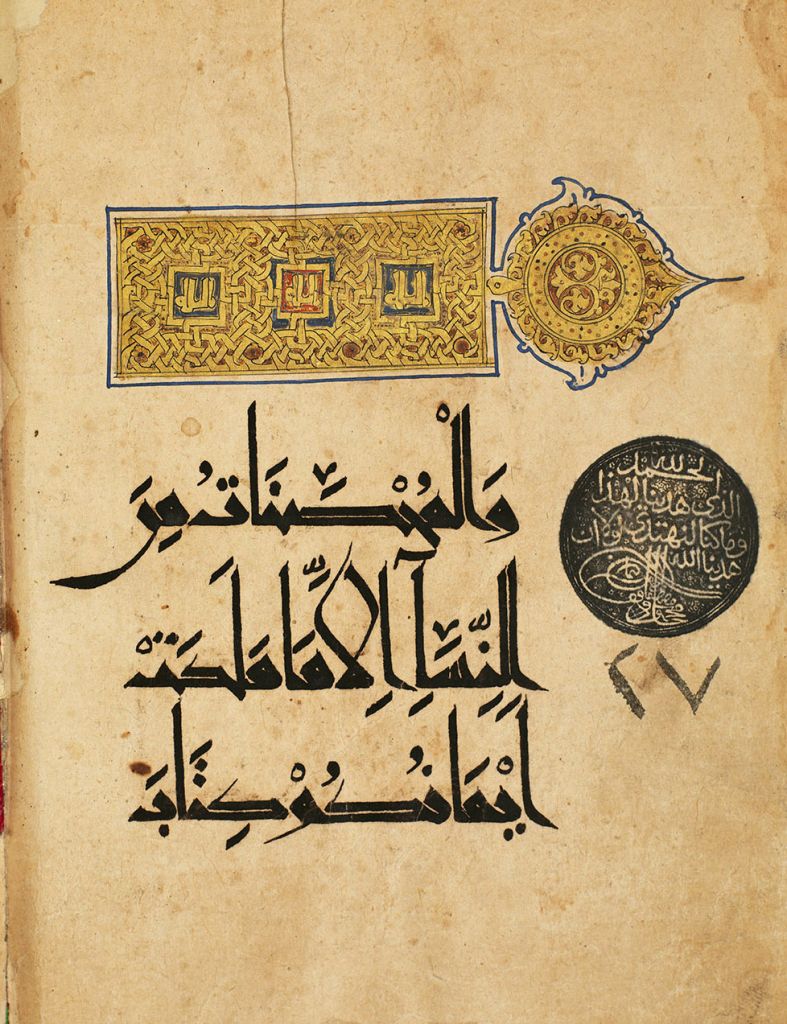 وَالْمُحْصَنَاتُ مِنَ
النِّسَآءِ اِلَّا مَا مَلَكَتْ
اَيْمَانُكُمْ كِتَابَ
الحمد لله
الذى هدينا لهذا
وما كنا لنهتدى لولا ان
هدينا الله
٢٧